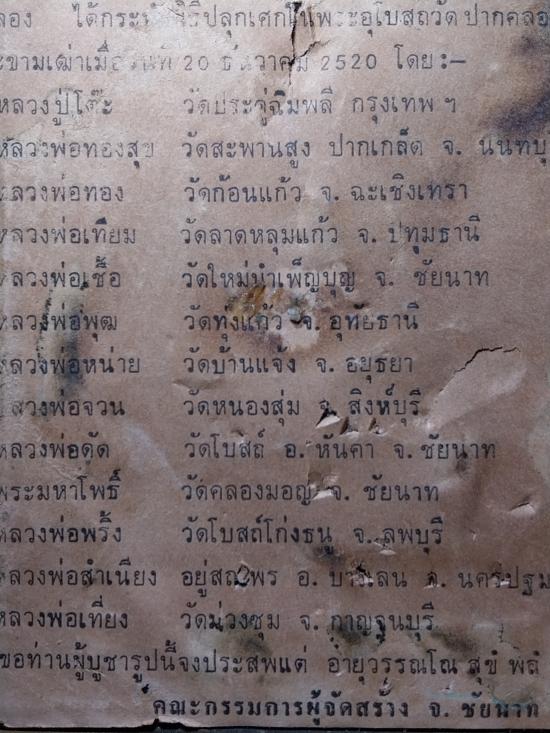 ลอง ได้กระทำพิธีปลุกเศกในพระอุโบสถวัด ปากคลอ
ะขามเฒ่าเมื่อวันที่ 20 ธันวาคม 2520 โดย:-
หลวงปู่โต๊ะ วัดประจู่ฉิมพลี กรุงเทพ ฯ
หลวงพ่อทองสุข วัดสะพานสูง ปากเกล็ด จ. นนทบุ
หลวงพ่อทอง วัดก้อนแก้ว จ. ฉะเชิงเทรา
หลวงพ่อเทียม วัดลาดหลุมแก้ว จ. ปทุมธานี
หลวงพ่อเชื้อ วัดใหม่บำเพ็ญบุญ จ. ชัยนาท
หลวงพ่อพุฒ วัดทุ่งแก้ว จ. อุทัยธานี
หลวงพ่อหน่าย วัดบ้านแจ้ง จ. อยุธยา
หลวงพ่อจวน วัดหนองสุ่ม จ. สิงห์บุรี
หลวงพ่อดัด วัดโบสถ์ อ. หันคา จ. ชัยนาท
พระมหาโพธิ์ วัดคลองมอญ จ. ชัยนาท
หลวงพ่อพริ้ง วัดโบสถ์โก่งธนู จ. ลพบุรี
หลวงพ่อสำเนียง อยู่สถาพร อ. บางเลน จ. นครปฐม
หลวงพ่อเที่ยง วัดม่วงชุม จ. กาญจนบุรี
ขอท่านผู้บูชารูปนี้จงประสพแต่ อายุวรรณโณ สุขํ พลํ
คณะกรรมการผู้จัดสร้าง จ. ชัยนาท